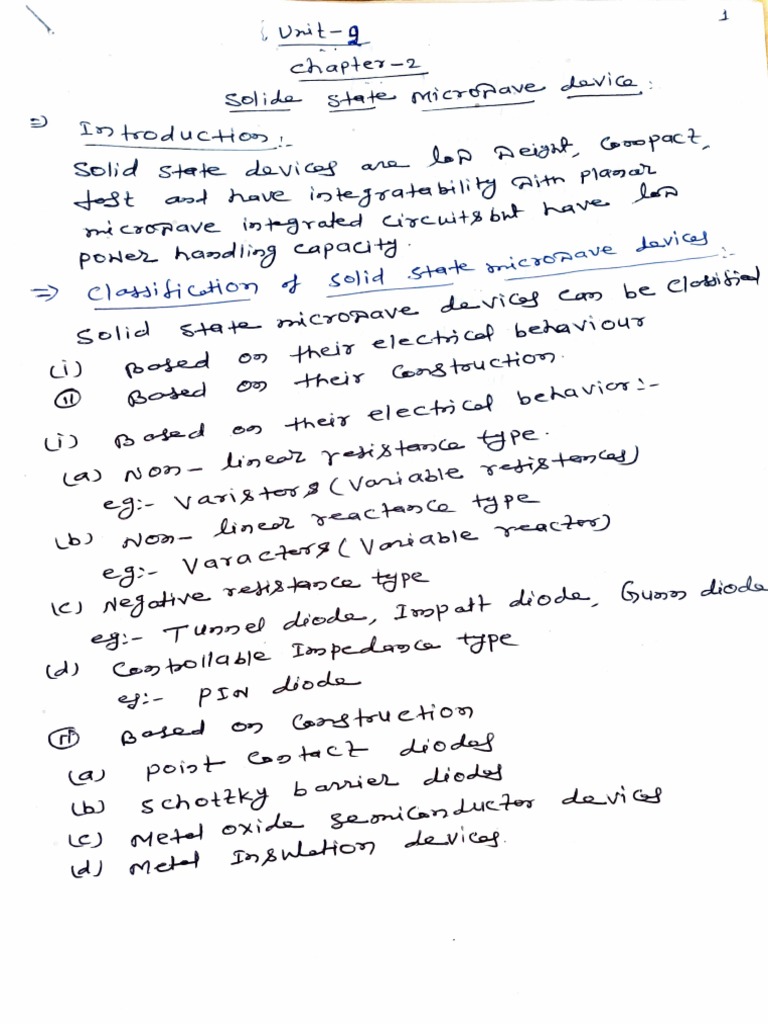 1
Unit-9
Chapter-2
Solide State Microwave device :
⇒ Introduction :-
Solid state devices are low weight, compact,
fast and have integratability with planar
microwave integrated circuits but have low
power handling capacity.
⇒ Classification of solid state microwave devices :-
Solid state microwave devices can be classified
(i) Based on their electrical behaviour
(ii) Based on their construction.
(i) Based on their electrical behavior :-
(a) Non-linear resistance type.
eg:- Varistors (Variable resistances)
(b) Non-linear reactance type
eg:- Varacters (Variable reactor)
(c) Negative resistance type
eg:- Tunnel diode, Impatt diode, Gunn diode
(d) Controllable Impedance type
eg:- PIN diode
(ii) Based on Construction
(a) point contact diodes
(b) Schottky barrier diodes
(c) Metal oxide semiconductor devices
(d) Metal Insulation devices.